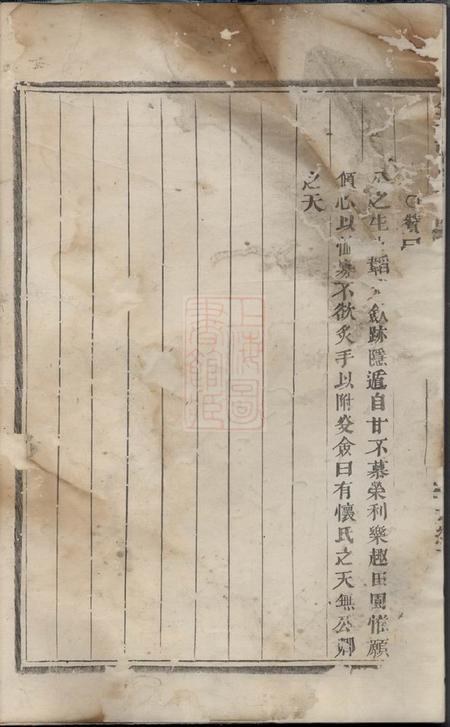 贊曰
之生 韜 斂跡隱遁自甘不慕榮利樂趣田園惟願
傾心以 不欲炙手以附炎僉曰有懷氏之天無公卿
之天
上海圖書館藏